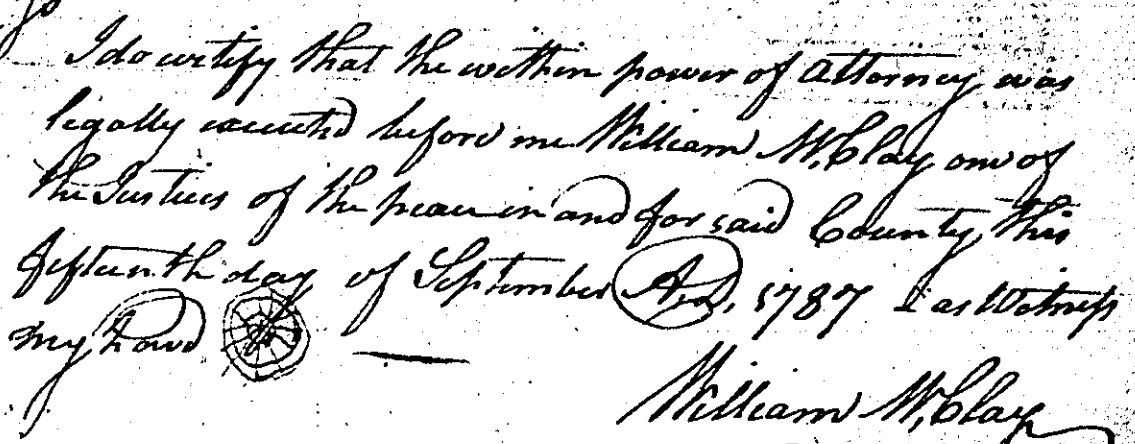 I do certify that the within power of attorney was
legally executed before me William McClay one of
the Justices of the peace in and for said County, this
fifteenth day of September A.D. 1787 as Witness
my hand
William McClay